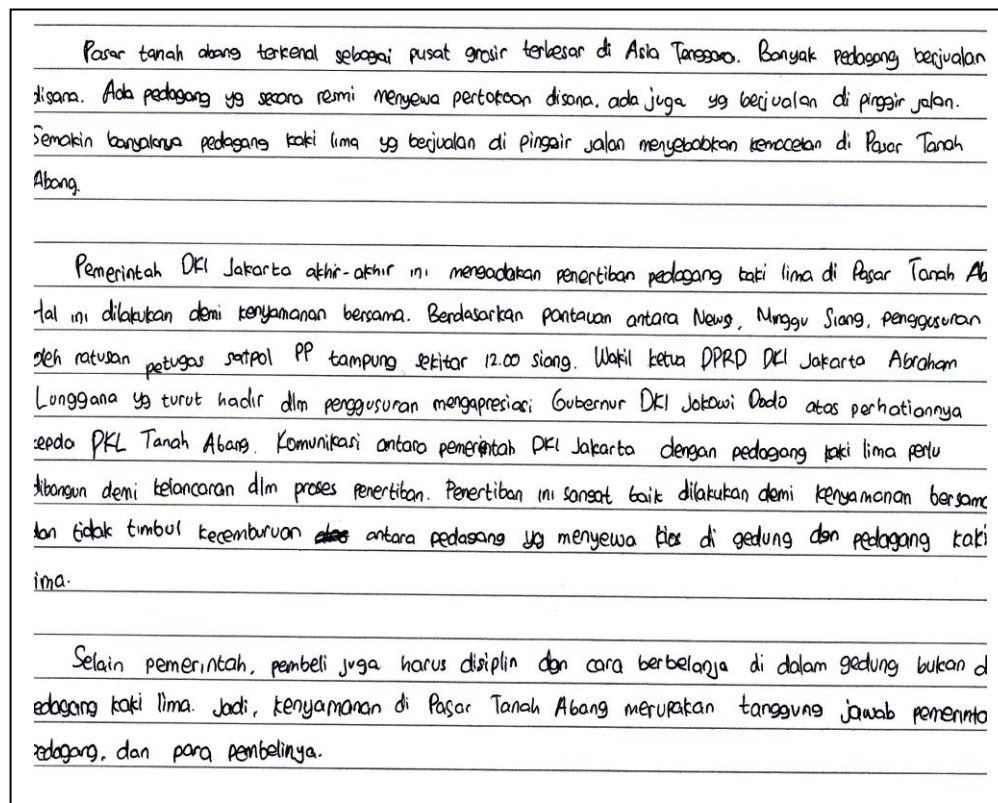 Pasar tanah abang terkenal sebagai pusat grosir terbesar di Asia Tenggara. Banyak pedagang berjualan
disana. Ada pedagang yg secara resmi menyewa pertokoan disana, ada juga yg berjualan di pinggir jalan.
Semakin banyaknya pedagang kaki lima yg berjualan di pinggir jalan menyebabkan kemacetan di Pasar Tanah
Abang.
Pemerintah DKI Jakarta akhir-akhir ini mengadakan penertiban pedagang kaki lima di Pasar Tanah Ab
Hal ini dilakukan demi kenyamanan bersama. Berdasarkan pantauan antara News, Minggu Siang, penggusuran
oleh ratusan petugas satpol PP tampung sekitar 12.00 siang. Wakil ketua DPRD DKI Jakarta Abraham
Lunggana yg turut hadir dlm penggusuran mengapresiasi Gubernur DKI Jokowi Dodo atas perhatiannya
kepada PKL Tanah Abang. Komunikasi antara pemerintah DKI Jakarta dengan pedagang kaki lima perlu
dibangun demi kelancaran dlm proses penertiban. Penertiban ini sangat baik dilakukan demi kenyamanan bersama
dan tidak timbul kecemburuan antara pedagang yg menyewa kios di gedung dan pedagang kaki
lima.
Selain pemerintah, pembeli juga harus disiplin dgn cara berbelanja di dalam gedung bukan d
pedagang kaki lima. Jadi, kenyamanan di Pasar Tanah Abang merupakan tanggung jawab pemerinta
pedagang, dan para pembelinya.